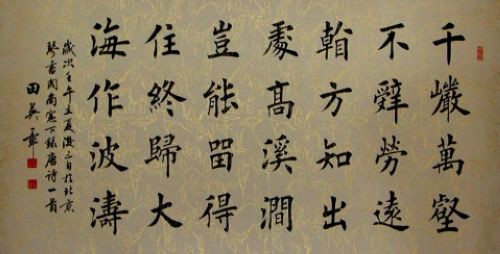 千巖萬壑
不辤勞遠
看方知出
處高溪澗
豈能留得
住終歸大
海作波濤
歲次壬午立夏後三日於北京
琴書閣南窗下錄唐詩一首
田英章